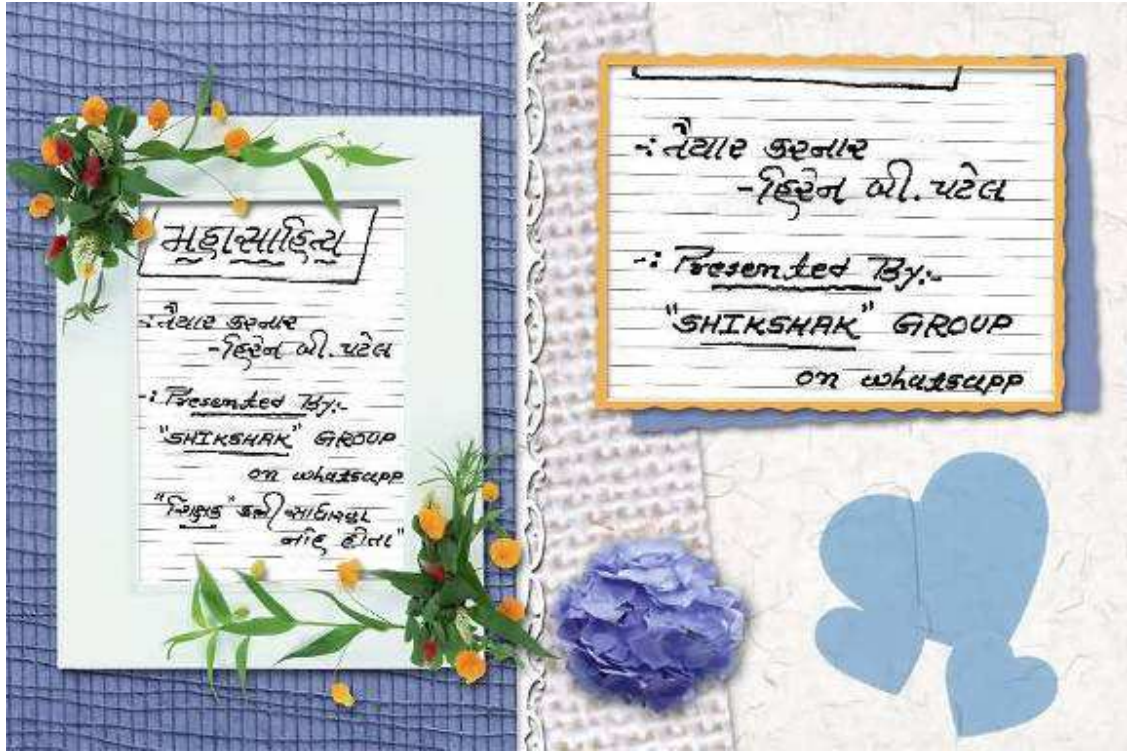 મહાસાહિત્ય
-: તૈયાર કરનાર
- હિરેન બી. પટેલ
-: Presented By:-
"SHIKSHAK" GROUP
on whatsapp
"શિક્ષક" કભી સાધારણ
નહિ હોતા"
-: તૈયાર કરનાર
- હિરેન બી. પટેલ
-: Presented By:-
"SHIKSHAK" GROUP
on whatsapp